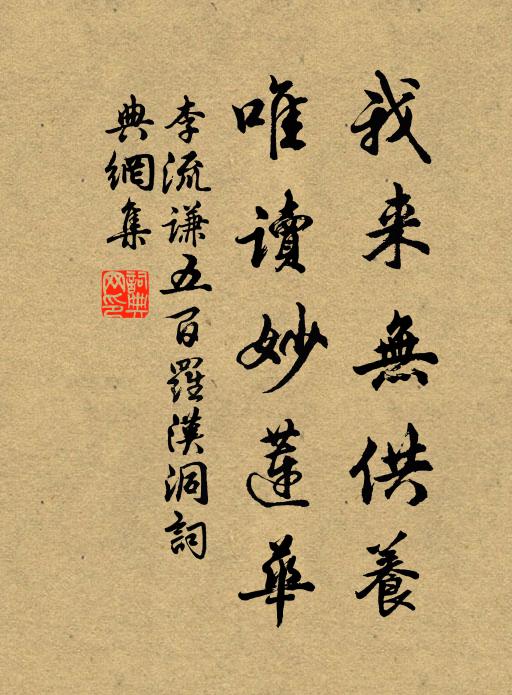 我来無供養
唯讀妙蓮華
李流謙五百羅漢洞詞
典網集
詞典网印